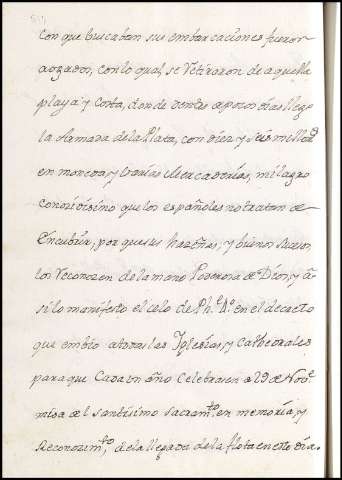 con que buscaban sus embarcaciones fueron
avzados, con lo qual, se retiraron de aquella
playa y costa, donde dentro a pocos dias llego
la Armada de la Plata, con diez y seis millo.s
en moneda, y varias Mercadurías, milagro
conosidisimo que los españoles no tratan de
Encubrir, por que sus hazañas, y buenos suzes
los reconozen de la mano Poderosa de Dios, y a
si lo manifesto el celo de Ph.e 4.o en el decreto
que embio a todas las Iglesias, y Cathedrales
para que Cada un año Celebrasen a 29 de Nov.e
misa de el santisimo Sacram.to en memoria, y
Reconozim.to de la llegada de la flota en este dia.